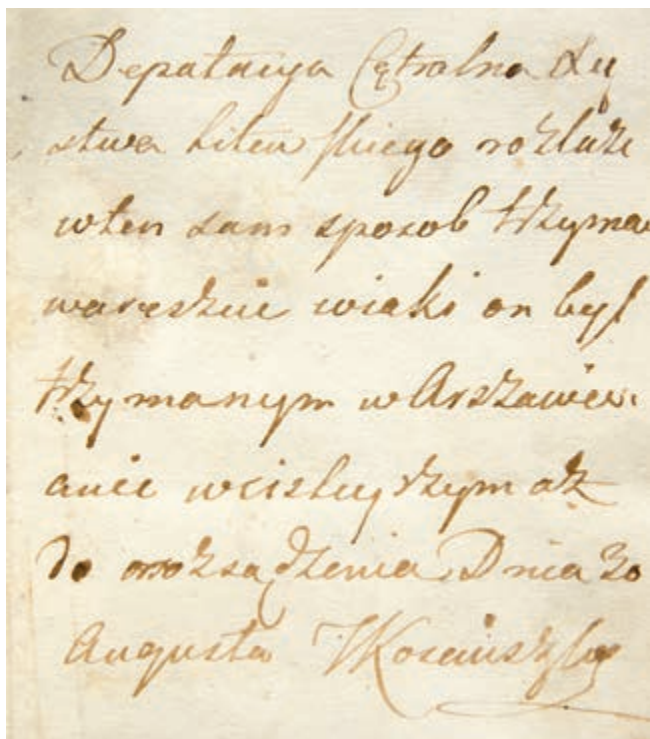 Deputacya Cętralna Xię
stwa Litewskiego rozkaże
wten sam sposob trzymac
wareszcie wiaki on był
trzymanym wArszawie
anie wcisleyszym aż
do rozsądzenia Dnia 30
Augusta TKosciuszko